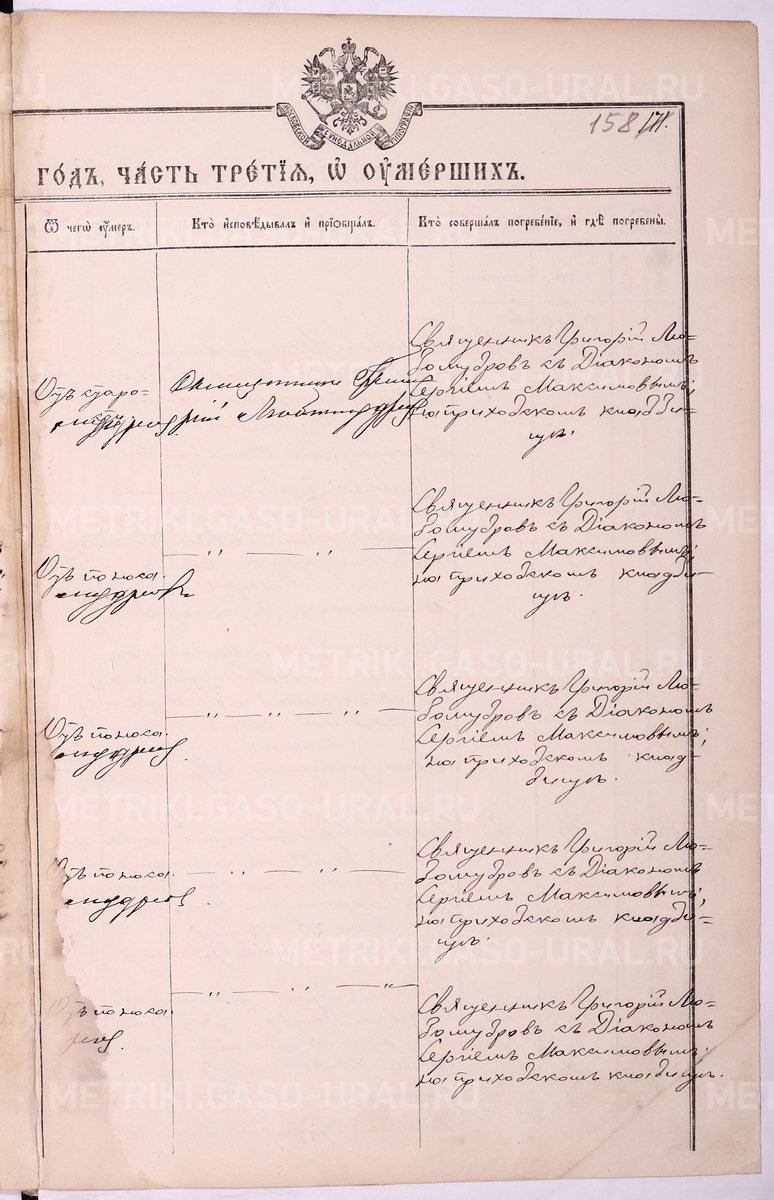 METRIKI.GASO-URAL.RU
МОСКОВСКОЙ СѶНОДАЛЬНОЙ ТИПОГРАФІИ
158
171.
ГО́ДЪ, ЧА́СТЬ ТРЕ́ТЇѦ, Ѽ ОУ҆МЕ́РШИХЪ.
Ѿ чегѡ̀ оу҆́меръ.
Кто̀ и҆сповѣ́дывалъ и҆ прїѡбща́лъ.
Кто̀ соверша́лъ погребе́нїе, и҆ гдѣ̀ погребены̀.
Отъ старо-
сти
Священникъ Григо-
рій Любомудровъ
Священникъ Григорій Лю-
бомудровъ съ Діакономъ
Сергіемъ Максимовымъ;
на приходскомъ кладби-
щѣ.
Отъ поноса
— „ — „ —
Священникъ Григорій Лю-
бомудровъ съ Діакономъ
Сергіемъ Максимовымъ;
на приходскомъ кладби-
щѣ.
Отъ поноса
— „ — „ — „ —
Священникъ Григорій Лю-
бомудровъ съ Діакономъ
Сергіемъ Максимовымъ;
на приходскомъ клад-
бищѣ.
Отъ поноса
— „ — „ —
Священникъ Григорій Лю-
бомудровъ съ Діакономъ
Сергіемъ Максимовымъ;
на приходскомъ кладби-
щѣ.
Отъ поноса
— „ — „ — „
Священникъ Григорій Лю-
бомудровъ съ Діакономъ
Сергіемъ Максимовымъ;
на приходскомъ кладбищѣ.